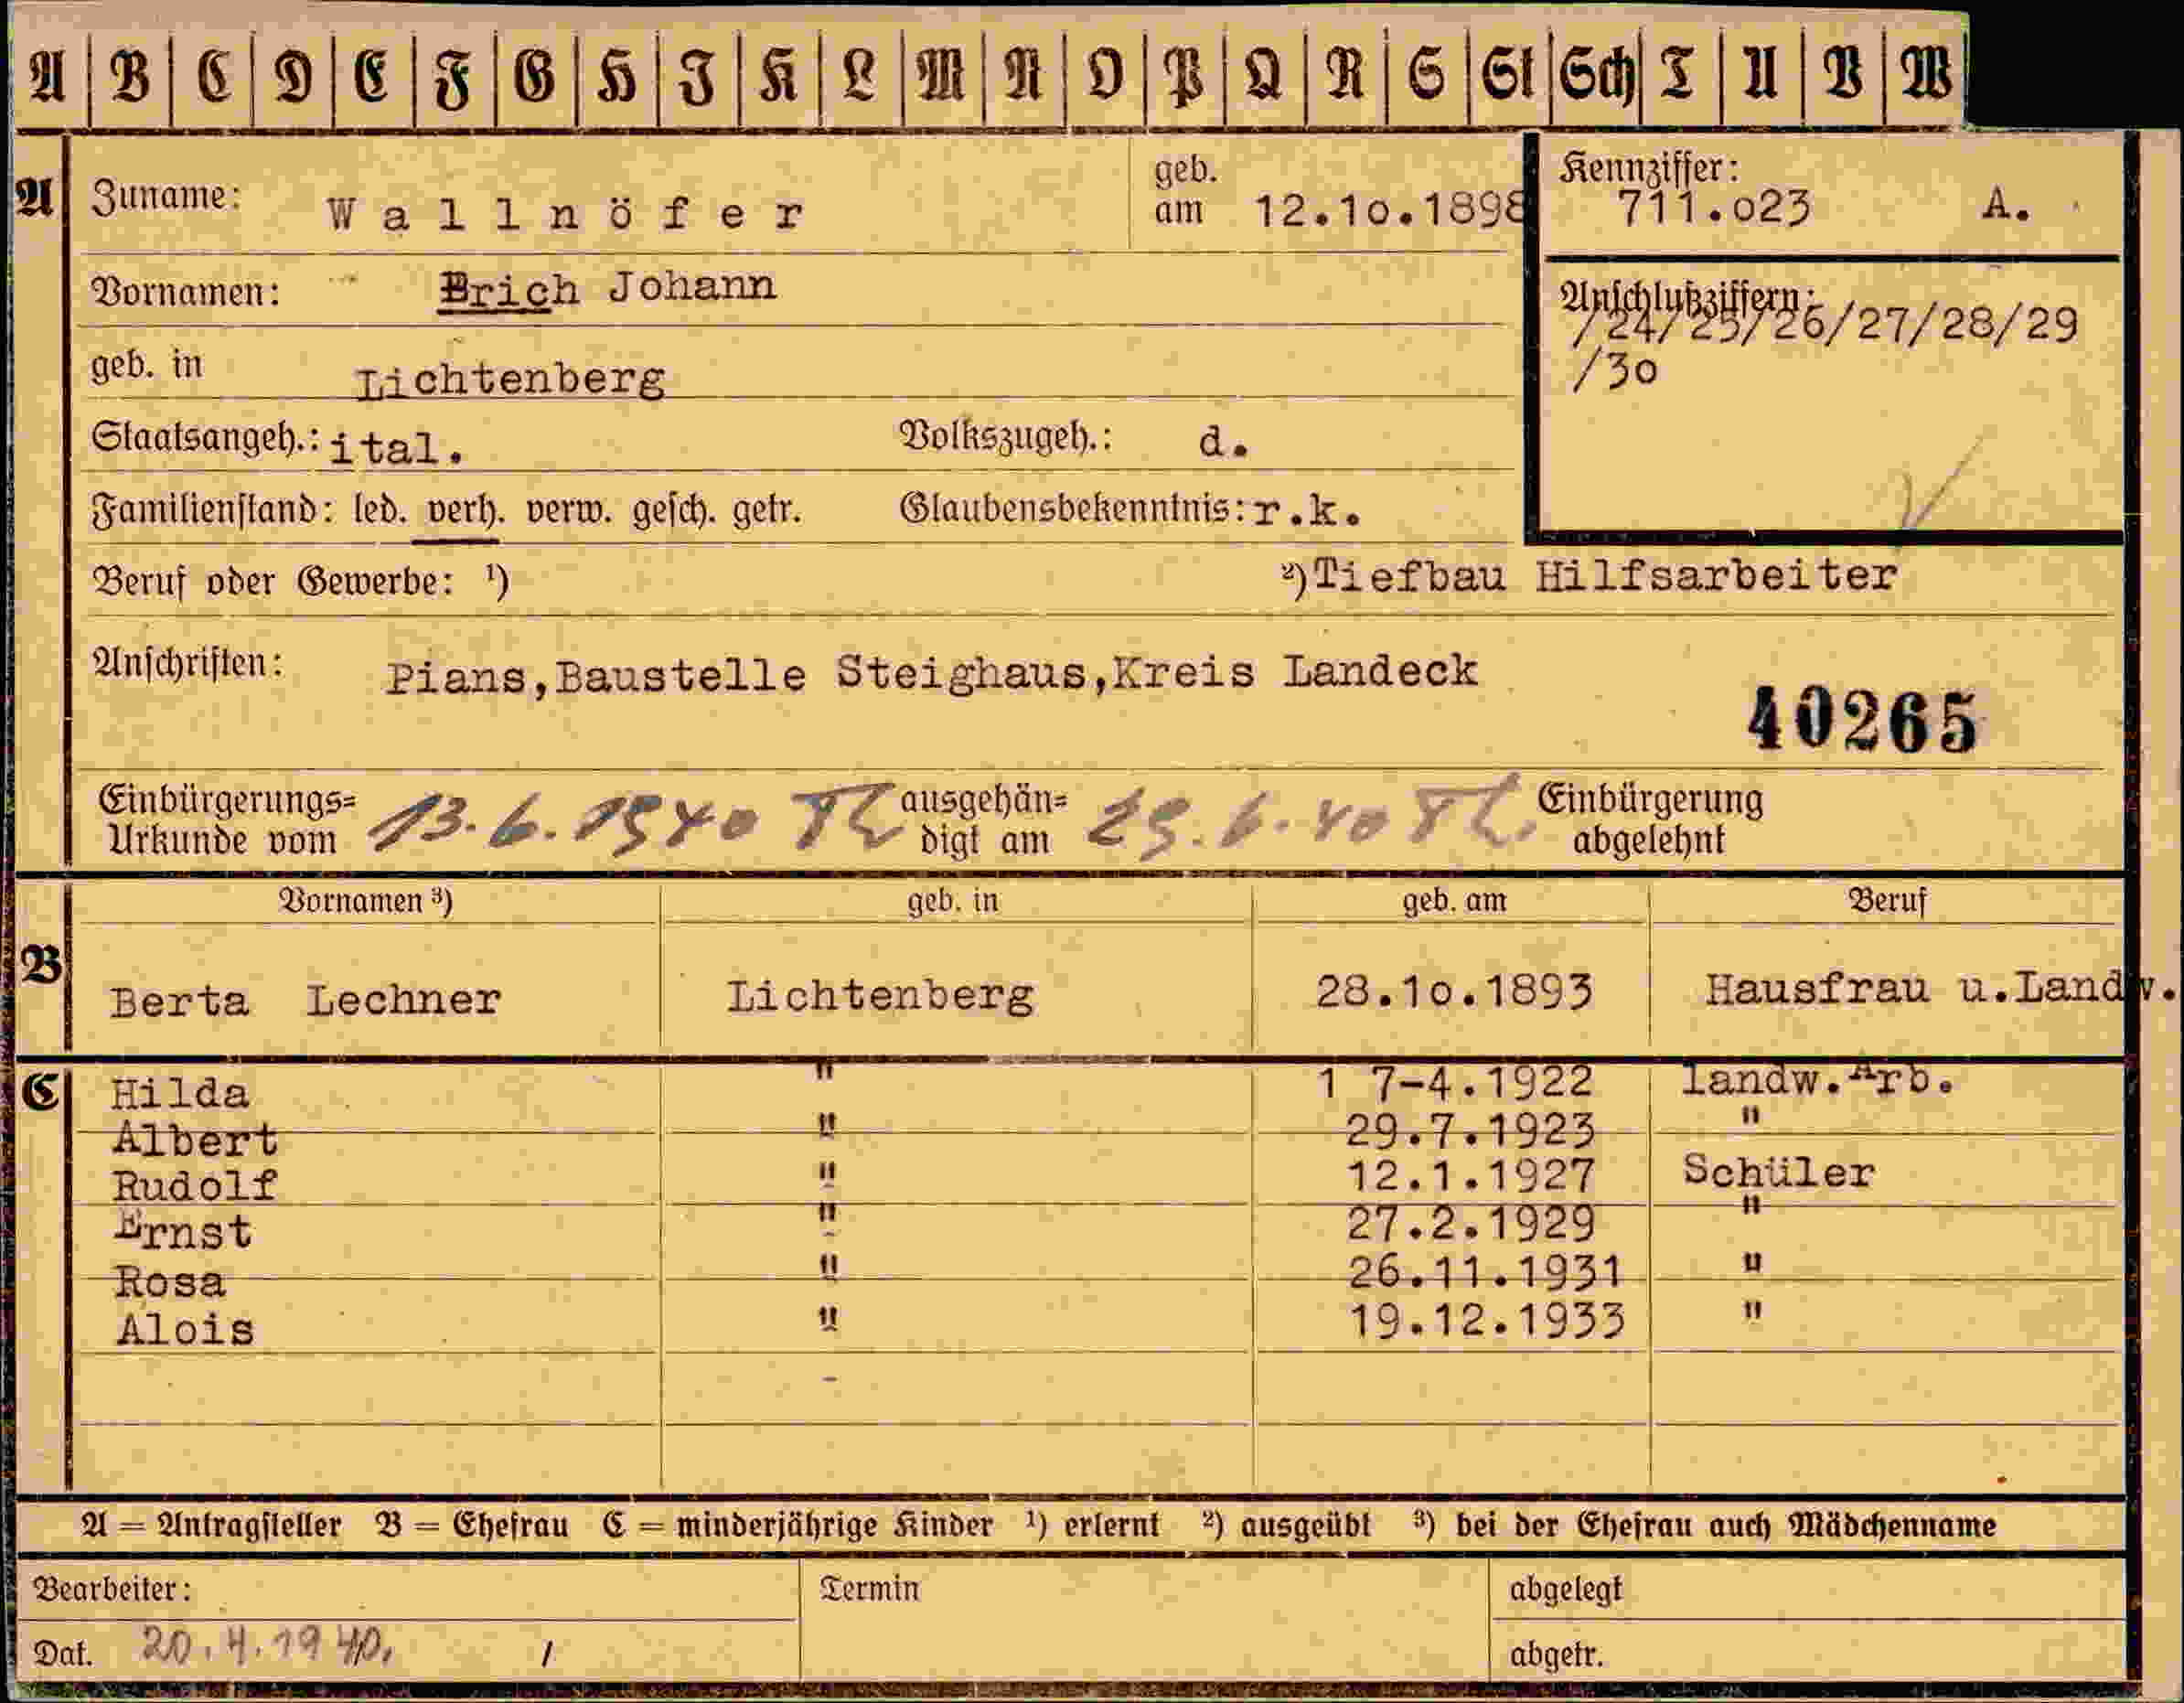 A B C D E F G H I K L M N O P Q R S St Sch T U V W
A Zuname: Wallnöfer geb. am 12.10.1898 Kennziffer: 711.023 A.
Vornamen: Erich Johann Anschlußziffern: /24/25/26/27/28/29
/30
geb. in Lichtenberg
Staatsangeh.: ital. Volkszugeh.: d.
Familienstand: led. verh. verw. gesch. getr. Glaubensbekenntnis: r.k.
Beruf oder Gewerbe: ¹) ²) Tiefbau Hilfsarbeiter
Anschriften: Pians,Baustelle Steighaus,Kreis Landeck
40265
Einbürgerungs= Urkunde vom 13.6.1940 ausgehän= digt am 29.6.40 Einbürgerung abgelehnt
Vornamen ³) geb. in geb. am Beruf
B Berta Lechner Lichtenberg 28.10.1893 Hausfrau u.Landw.
C Hilda " 1 7-4.1922 landw.Arb.
Albert " 29.7.1923 "
Rudolf " 12.1.1927 Schüler
Ernst " 27.2.1929 "
Rosa " 26.11.1931 "
Alois " 19.12.1933 "
A = Antragsteller B = Ehefrau C = minderjährige Kinder ¹) erlernt ²) ausgeübt ³) bei der Ehefrau auch Mädchenname
Bearbeiter: Termin abgelegt
Dat. 20.4.1940. / abgetr.